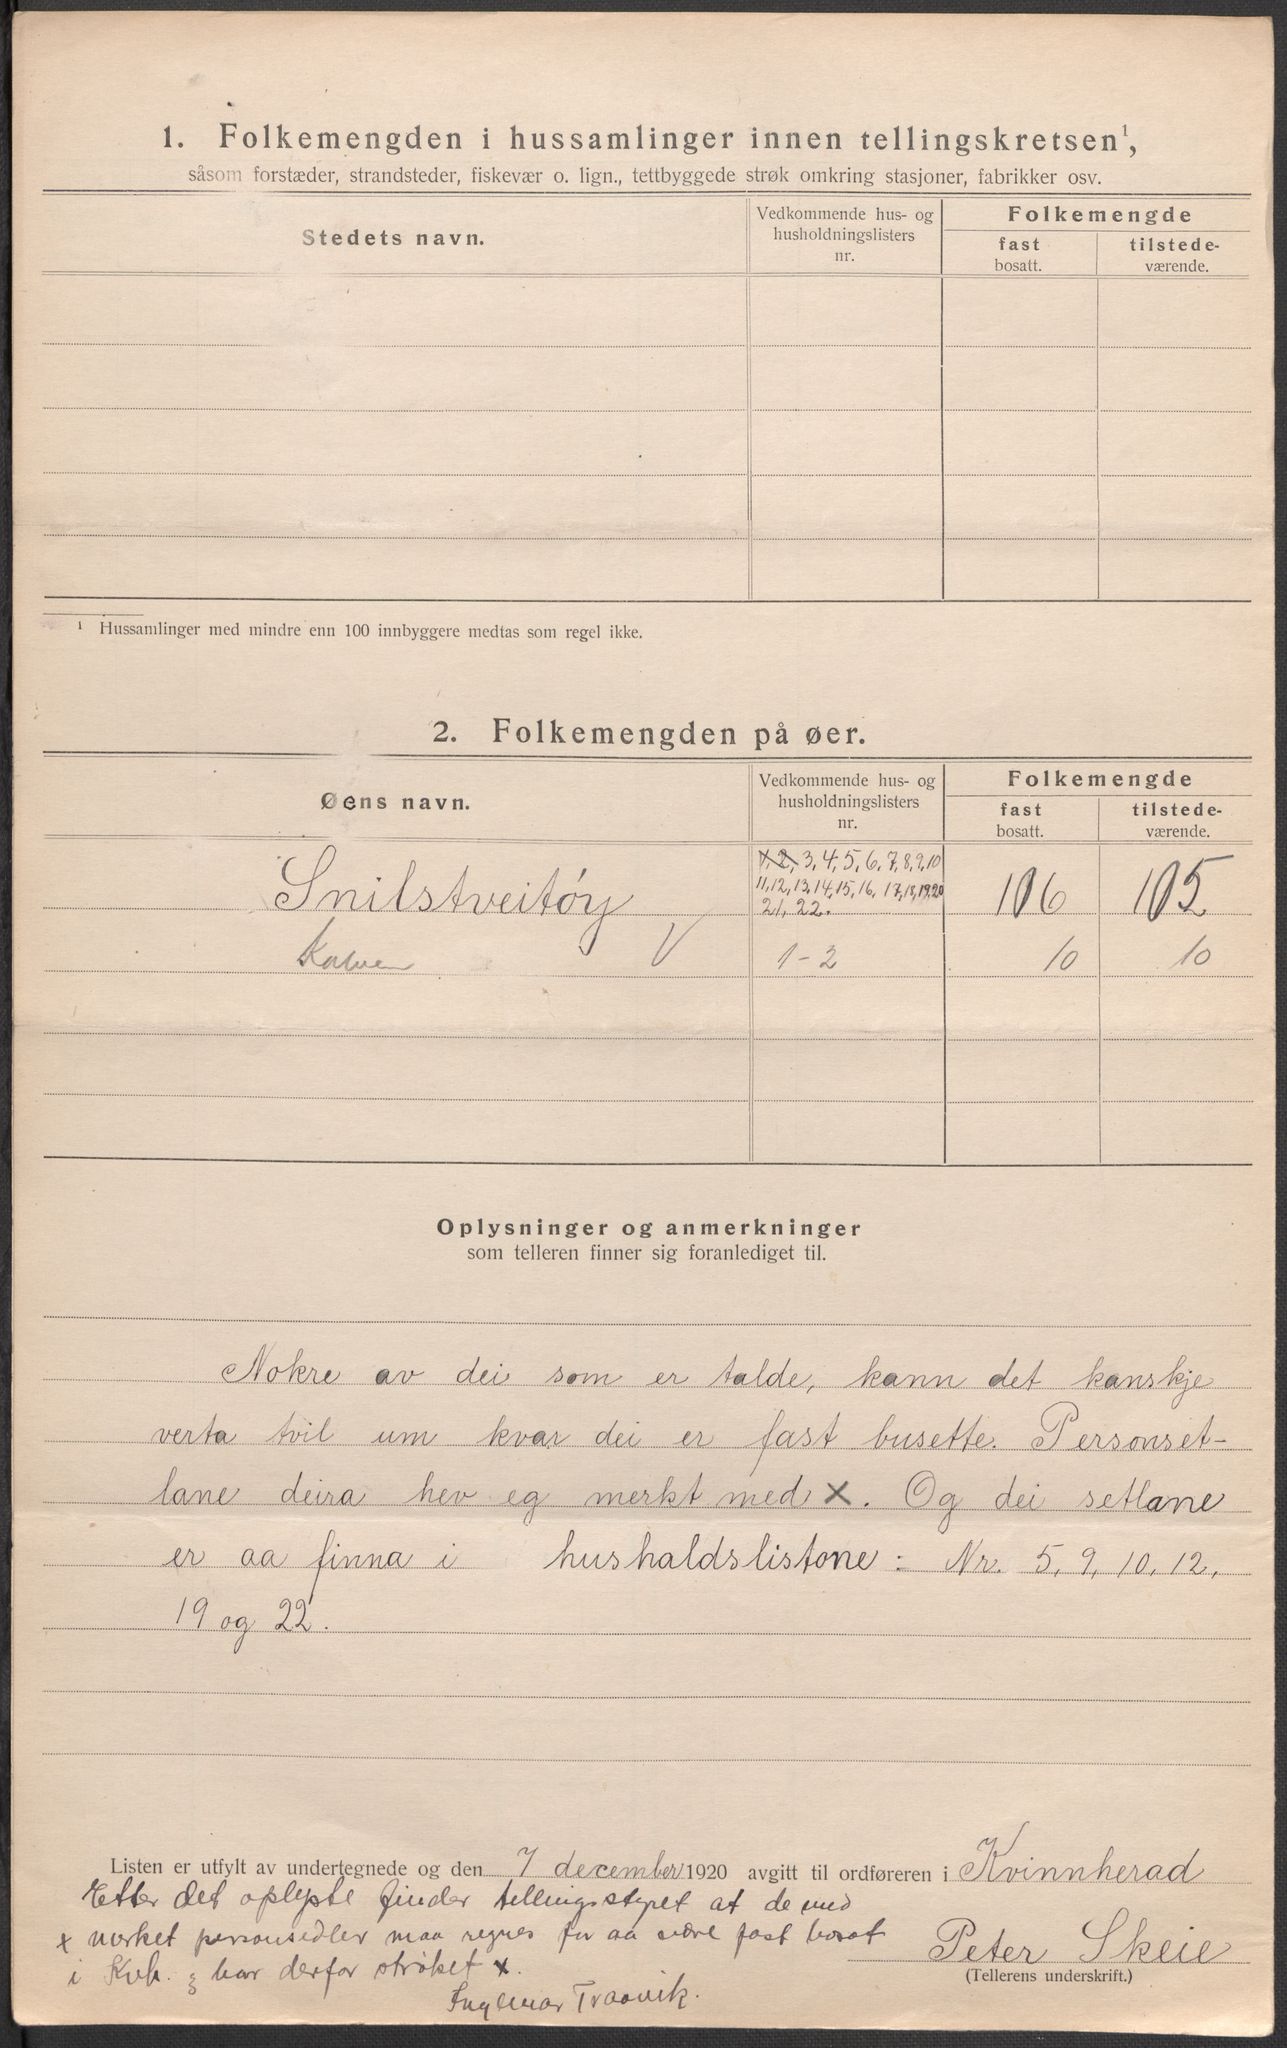 1. Folkemengden i hussamlinger innen tellingskretsen¹,
såsom forstæder, strandsteder, fiskevær o. lign., tettbyggede strøk omkring stasjoner, fabrikker osv.
Stedets navn.
Vedkommende hus- og husholdningslisters nr.
Folkemengde
fast bosatt.
tilstede-værende.
¹ Hussamlinger med mindre enn 100 innbyggere medtas som regel ikke.
2. Folkemengden på øer.
Øens navn.
Vedkommende hus- og husholdningslisters nr.
Folkemengde
fast bosatt.
tilstede-værende.
1, 2, 3, 4, 5, 6, 7, 8, 9, 10
Snilstveitøy 11, 12, 13, 14, 15, 16, 17, 18, 19, 20 106 105
21, 22.
Kalven V 1-2 10 10
Oplysninger og anmerkninger
som telleren finner sig foranlediget til.
Nokre av dei som er talde, kann det kanskje
verta tvil um kvar dei er fast busette. Personset-
lane deira hev eg merkt med x. Og dei setlane
er aa finna i hushaldslistone: Nr. 5, 9, 10, 12,
19 og 22.
Listen er utfylt av undertegnede og den 7 december 1920 avgitt til ordføreren i Kvinnherad
Etter det oplyste finder tellingsstyret at de med
x merket personsedler maa regnes for aa være fast bosat
i Kvh. & har derfor strøket x.
Peter Skeie
(Tellerens underskrift.)
Ingemar Traavik.